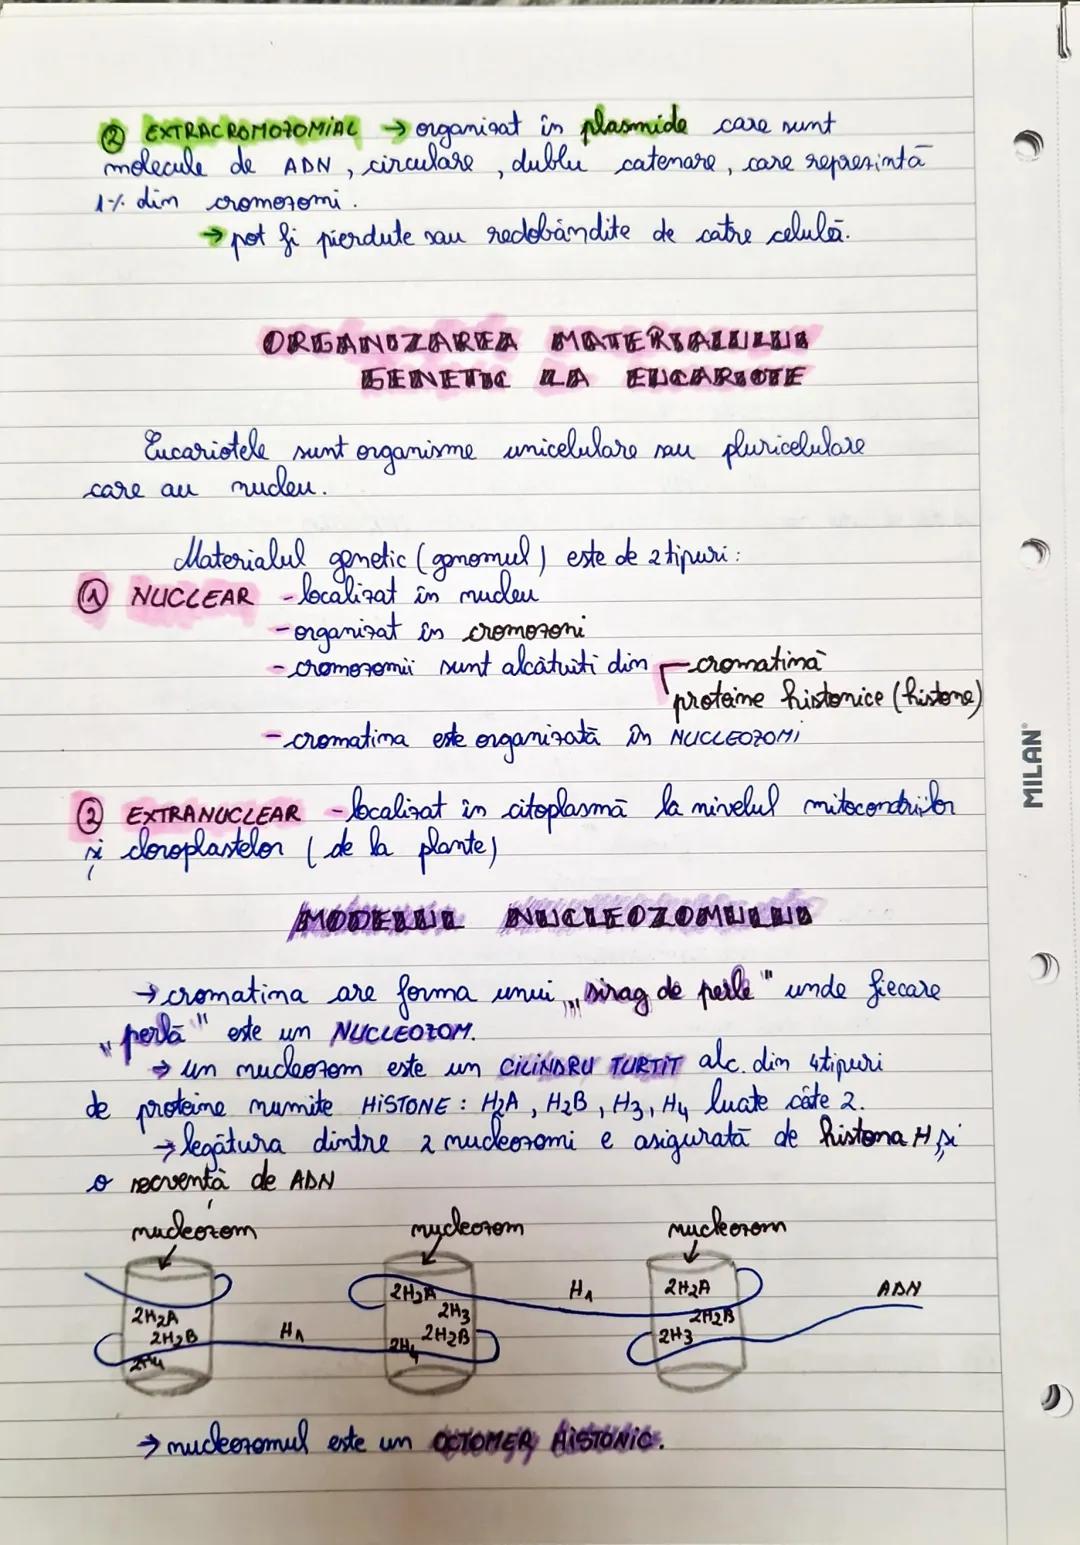 ② EXTRACROMOZOMIAL → organizat în plasmide care sunt
molecule de ADN, circulare, dublu catenare, care reprezintă
1% din cromozomi.
→ pot fi pierdute sau redobândite de catre celulă.
ORGANIZAREA MATERIALULUI
GENETIC LA EUCARIOTE
Eucariotele sunt organisme unicelulare sau pluricelulare
care au nucleu.
Materialul genetic (genomul) este de 2 tipuri:
① NUCLEAR - localizat în nucleu
- organizat în cromozoni
- cromozomii sunt alcătuiti din cromatină
proteine histonice (histone)
- cromatina este organizată în NUCLEOZOMI
② EXTRANUCLEAR - localizat în citoplasmă la nivelul mitocondriilor
și cloroplastelor (de la plante)
MODELUL NUCLEOZOMULUI
→ cromatina are forma unui „sirag de perle" unde fiecare
„perlă" este un NUCLEOZOM.
→ un nucleozom este un CILINDRU TURTIT alc. din 4 tipuri
de proteine numite HISTONE: H2A, H2B, H3, H4 luate câte 2.
→ legătura dintre 2 nucleozomi e asigurată de histona H1 și
o secvență de ADN
nucleozom nucleozom nucleozom
2H2A 2H2B 2H4 H1 2H2A 2H3 2H2B 2H4 H1 2H2A 2H2B 2H3 ADN
→ nucleozomul este un OCTOMER HISTONIC.
MILAN